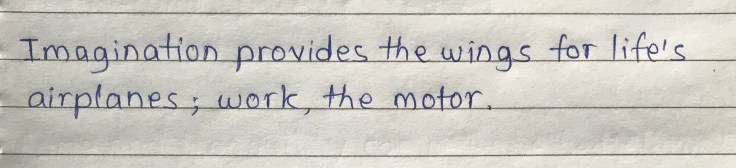 Imagination provides the wings for life's
airplanes; work, the motor.